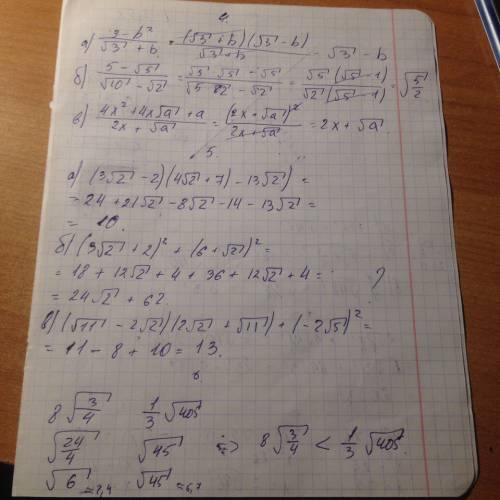 4.
а) 3 - b² / √3 + b = (√3 + b)(√3 - b) / √3 + b = √3 - b
б) 5 - √5 / √10 - √2 = √5 · √5 - √5 / √5 · √2 - √2 = √5 (√5 - 1) / √2 (√5 - 1) = √5/2
в) 4x² + 4x√a + a / 2x + √a = (2x + √a)² / 2x + √a = 2x + √a
5.
а) (3√2 - 2)(4√2 + 7) - 13√2) =
= 24 + 21√2 - 8√2 - 14 - 13√2 =
= 10.
б) (3√2 + 2)² + (6 + √2)² =
= 18 + 12√2 + 4 + 36 + 12√2 + 4 = ?
= 24√2 + 62.
в) (√11 - 2√2)(2√2 + √11) + (-2√5)² =
= 11 - 8 + 10 = 13.
6.
8√3/4 1/3 √405
√24/4 √45 => 8√3/4 < 1/3 √405.
√6 ≈2,4 √45 ≈6,7